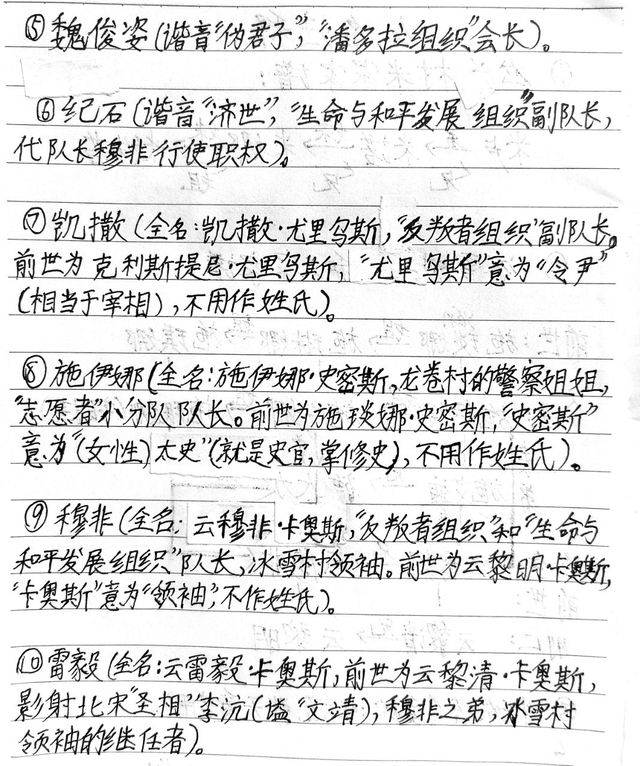 ⑤魏俊姿(谐音“伪君子”,“潘多拉组织”会长)。
⑥纪石(谐音“济世”,“生命与和平发展组织”副队长,
代队长穆非行使职权)。
⑦凯撒(全名:凯撒·尤里乌斯,“反叛者组织”副队长。
前世为克利斯提尼·尤里乌斯,“尤里乌斯”意为“令尹”
(相当于宰相),不用作姓氏)。
⑧施伊娜(全名:施伊娜·史密斯,龙卷村的警察姐姐,
“志愿者”小分队队长。前世为施琰娜·史密斯,“史密斯”
意为“(女性)太史”(就是史官,掌修史),不用作姓氏)。
⑨穆非(全名:云穆非·卡奥斯,“反叛者组织”和“生命与
和平发展组织”队长,冰雪村领袖。前世为云黎明·卡奥斯,
“卡奥斯”意为“领袖”,不作姓氏)。
⑩雷毅(全名:云雷毅·卡奥斯,前世为云黎清·卡奥斯,
影射北宋“圣相”李沆(谥“文靖”),穆非之弟,冰雪村
领袖的继任者)。